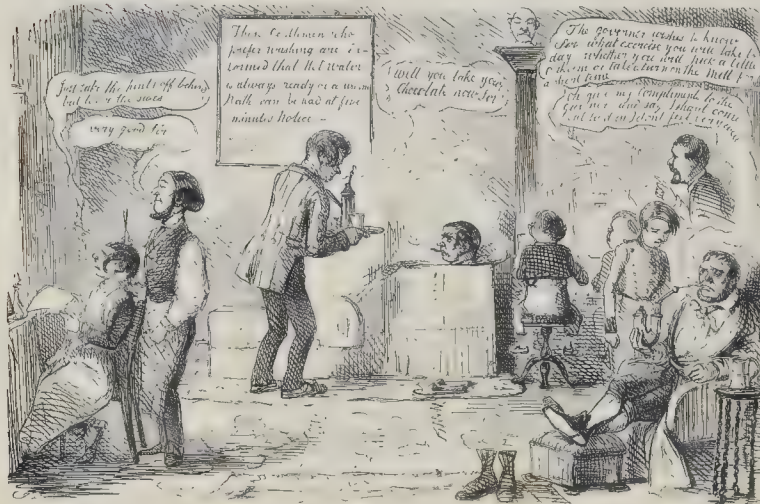 Just take the points off behind
but leave the sides
very good Sir
Those Gentlemen who
prefer washing are in-
formed that Hot Water
is always ready or a warm
Bath can be had at five
minutes Notice –
Will you take your
Chocolate now Sir
The governor wishes to know
Sir what exercise you will take to
day whether you will pick a little
or take a turn on the Mill for
a short time
Oh give my compliments to the
Governor and say I shant come
out to day I dont feel very well